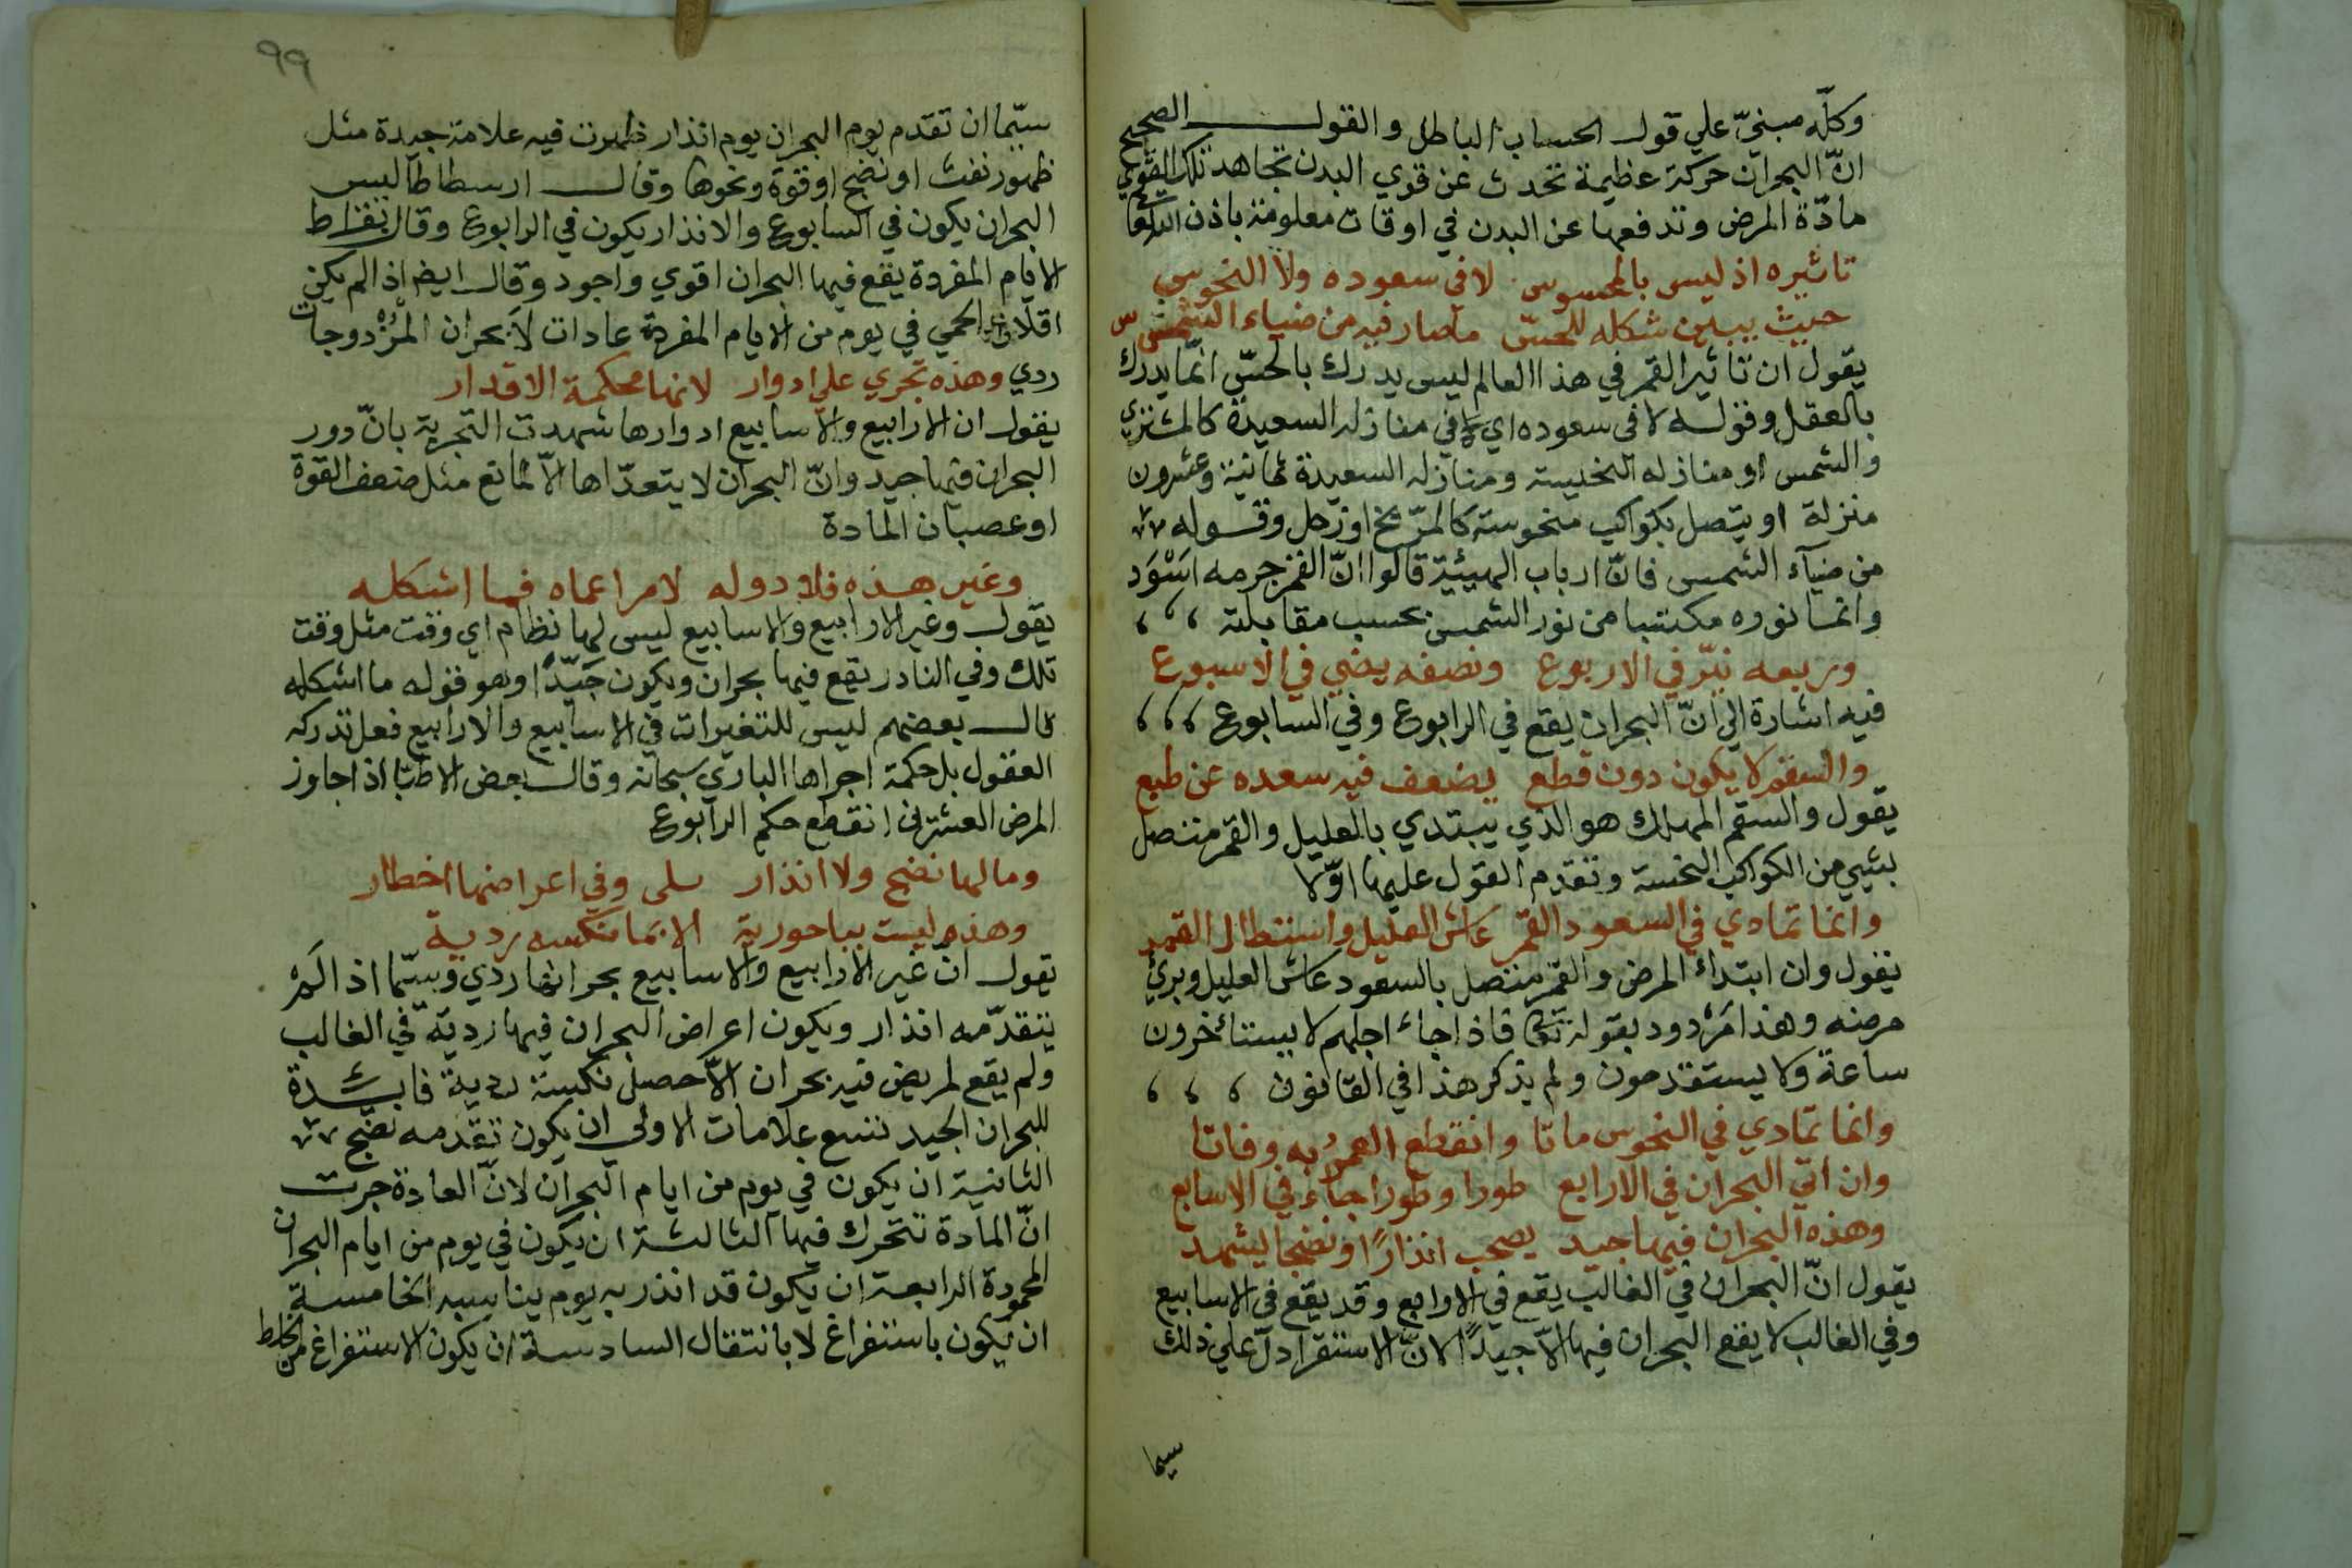 وكلّه مبنيّ علي قول الحساب الباطل والقول الصحيح
انّ البحران حركة عظيمة تحدث عن قوي البدن تجاهد تلك القوي
مادّة المرض وتدفعها عن البدن في اوقات معلومة باذن الله تعا
تاثيره اذ ليس بالمحسوس لا في سعوده ولا النحوس
حيث يبين شكله للحسّ ما صار فيه من ضياء الشمس
يقول ان تاثير القمر في هذا العالم ليس يدرك بالحسّ انّما يدرك
بالعقل وقوله لا في سعوده اي لا في منازله السعيدة كالمشتري
والشمس او منازله النحيسة ومنازله السعيدة ثمانية وعشرون
منزلة او يتصل بكواكب منحوسة كالمرّيخ او زحل وقوله
من ضيآء الشمس فانّ ارباب الهيئية قالوا انّ القمر جرمه اسْوَد
وانما نوره مكتسبا من نور الشمس بحسب مقابلته
وربعه نيّر في الاربوع ونصفه يضي في الاسبوع
فيه اشارة الي انّ البحران يقع في الرابوع وفي السابوع
والسقم لا يكون دون قطع يضعف فيه سعده عن طبع
يقول والسقم المهلك هو الذي يبتدي بالعليل والقمر متصل
بشيي من الكواكب النحسة وتقدم القول عليها اوّلا
وانما تمادي في السعود القمر عاش العليل واستطال القمر
يقول وان ابتداء المرض والقمر متصل بالسعود عاش العليل وبريَ
مرضه وهذا مَرْدود بقوله تعا فاذا جاء اجلهم لا يستاخرون
ساعة ولا يستقدمون ولم يذكر هذا في القانون
وانما تمادي في النحوس ماتا وانقطع العمرُ به وفاتا
وان اتي البحران في الارابع طورا وطورا جاء في الاسابع
وهذه البحران فيها جيد يصحب انذارًا او نضجا يشهد
يقول انّ البحران في الغالب يقع في الاوابع وقد يقع في الاسابيع
وفي الغالب لا يقع البحران فيها الاّ جيدًا لانّ الاستقرا دلّ علي ذلك
سيما
٩٩
سيّما ان تقدم يوم البحران يوم انذار ظهرت فيه علامة جيدة مثل
ظهور نفث او نضج او قوة ونحوها وقال ارسطاطاليس
البحران يكون في السابوع والانذار يكون في الرابوع وقال بقراط
الايام المفردة يقع فيها البحران اقوي واجود وقال ايضا اذا لم يكن
اقلاع الحمي في يوم من الايام المفردة عادات لاَ بحران المزدوجات
ردي وهذه تجري علي ادوار لانها محكمة الاقدار
يقول ان الارابيع والاسابيع ادوارها شهدت التجربة بانّ دور
البحران فيها جيد وانّ البحران لا يتعدّاها الاّ لمانع مثل ضعف القوة
او عصيان المادة
وغير هذه فلا دوله لامر اعماه فما اشكله
يقول وغير الارابيع والاسابيع ليس لها نظام اي وقت مثل وقت
تلك وفي النادر يقع فيها بحران ويكون جَيّدًا وهو قوله ما اشكله
قال بعضهم ليس للتغيرات في الاسابيع والارابيع فعل تدركه
العقول بل حكمة اجراها الباري سبحانه وقال بعض الاطبّا اذا جاوز
المرض العشرين انقطع حكم الرابوع
وما لها نضج ولا انذار بلى وفي اعراضها اخطار
وهذه ليست بباحورية الا بما نكسه ردية
يقول انّ غير الارابيع والاسابيع بحرانها ردي وسيّما اذا لَمْ
يتقدّمه انذار ويكون اعراض البحران فيها رديّة في الغالب
ولم يقع لمريض فيه بحران الاّ حصل نكسة ردية فايدة
للبحران الجيد تسع علامات الاولي ان يكون تقدمه نضج
الثانية ان يكون في يوم من ايام البحران لانّ العادة جرت
انّ المادة تتحرك فيها الثالثة ان يكون في يوم من ايام البحران
المحمودة الرابعة ان يكون قد انذر به يوم يناسبه الخامسة
ان يكون باستفراغ لا بانتقال السادسة ان يكون الاستفراغ من الخلط